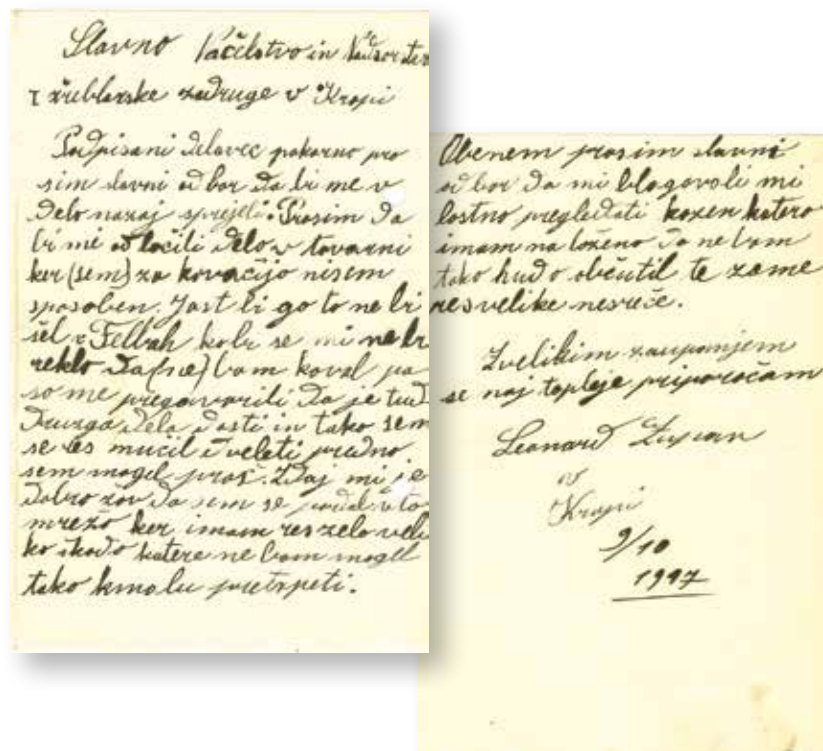 Slavno Načelstvo in Nadzorstvo
žreblarske zadruge v Kropi
Podpisani delavec pokorno pro
sim slavni odbor da bi me v
delo nazaj sprejeli. Prosim da
bi mi odločili delo v tovarni
ker (sem) za kovačijo nisem
sposoben. Jast bi go to ne bi
šel v Fellbah kobi se mi ne bi
reklo da (ne) bom koval pa
so me pregovorili da je tud
druzga dela dosti in tako sem
se res mučil dveleti predno
sem mogel proč. Zdaj mi je
dobro žov da sem se podal v to
mrežo ker imam res zelo veli
ko škodo katere ne bom mogel
tako kmalu pretrpeti.
Obenem prosim slavni
odbor da mi blagovoli mi
lostno pregledati kazen katero
imam na loženo da ne bom
tako hudo občutil te zame
res velike nesreče.
Z velikim zaupanjem
se naj topleje priporočam
Leonard Zupan
v
Kropi
9/10
1917